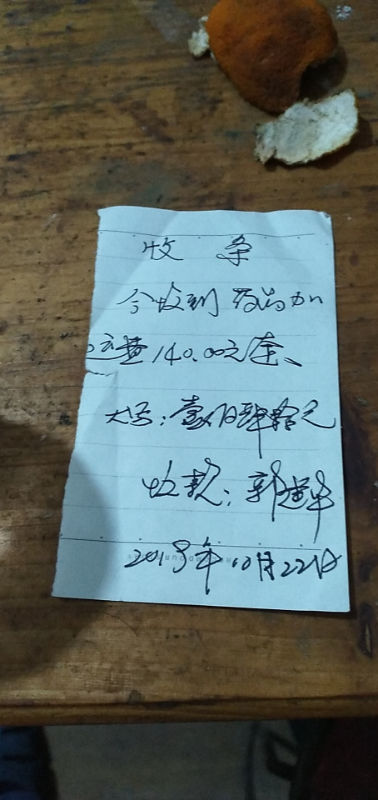 收 条
今收到 药尚加
运费 140.00元
大写：壹佰肆拾元
收款：郭
2019年10月22日